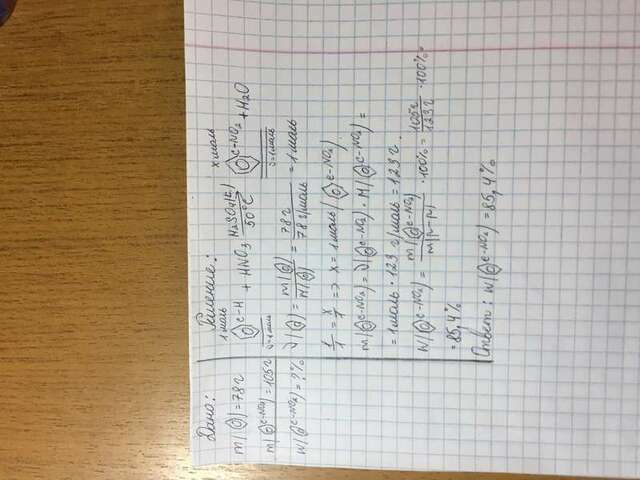 Дано:
m(⌬) = 78г
m(⌬C-NO₂) = 105г
w(⌬C-NO₂) = ?%
Решение:
1 моль x моль
⌬C-H + HNO₃ H₂SO₄(к.) 50°C → ⌬C-NO₂ + H₂O
ν=1моль ν=1моль
ν(⌬) = m(⌬) / M(⌬) = 78г / 78г/моль = 1моль
1/1 = x/1 => x = 1моль(⌬C-NO₂)
m(⌬C-NO₂) = ν(⌬C-NO₂) · M(⌬C-NO₂) =
= 1моль · 123 г/моль = 123г.
w(⌬C-NO₂) = m(⌬C-NO₂) / m(р-р) · 100% = 105г / 123г · 100% =
= 85,4%
Ответ: w(⌬C-NO₂) = 85,4%